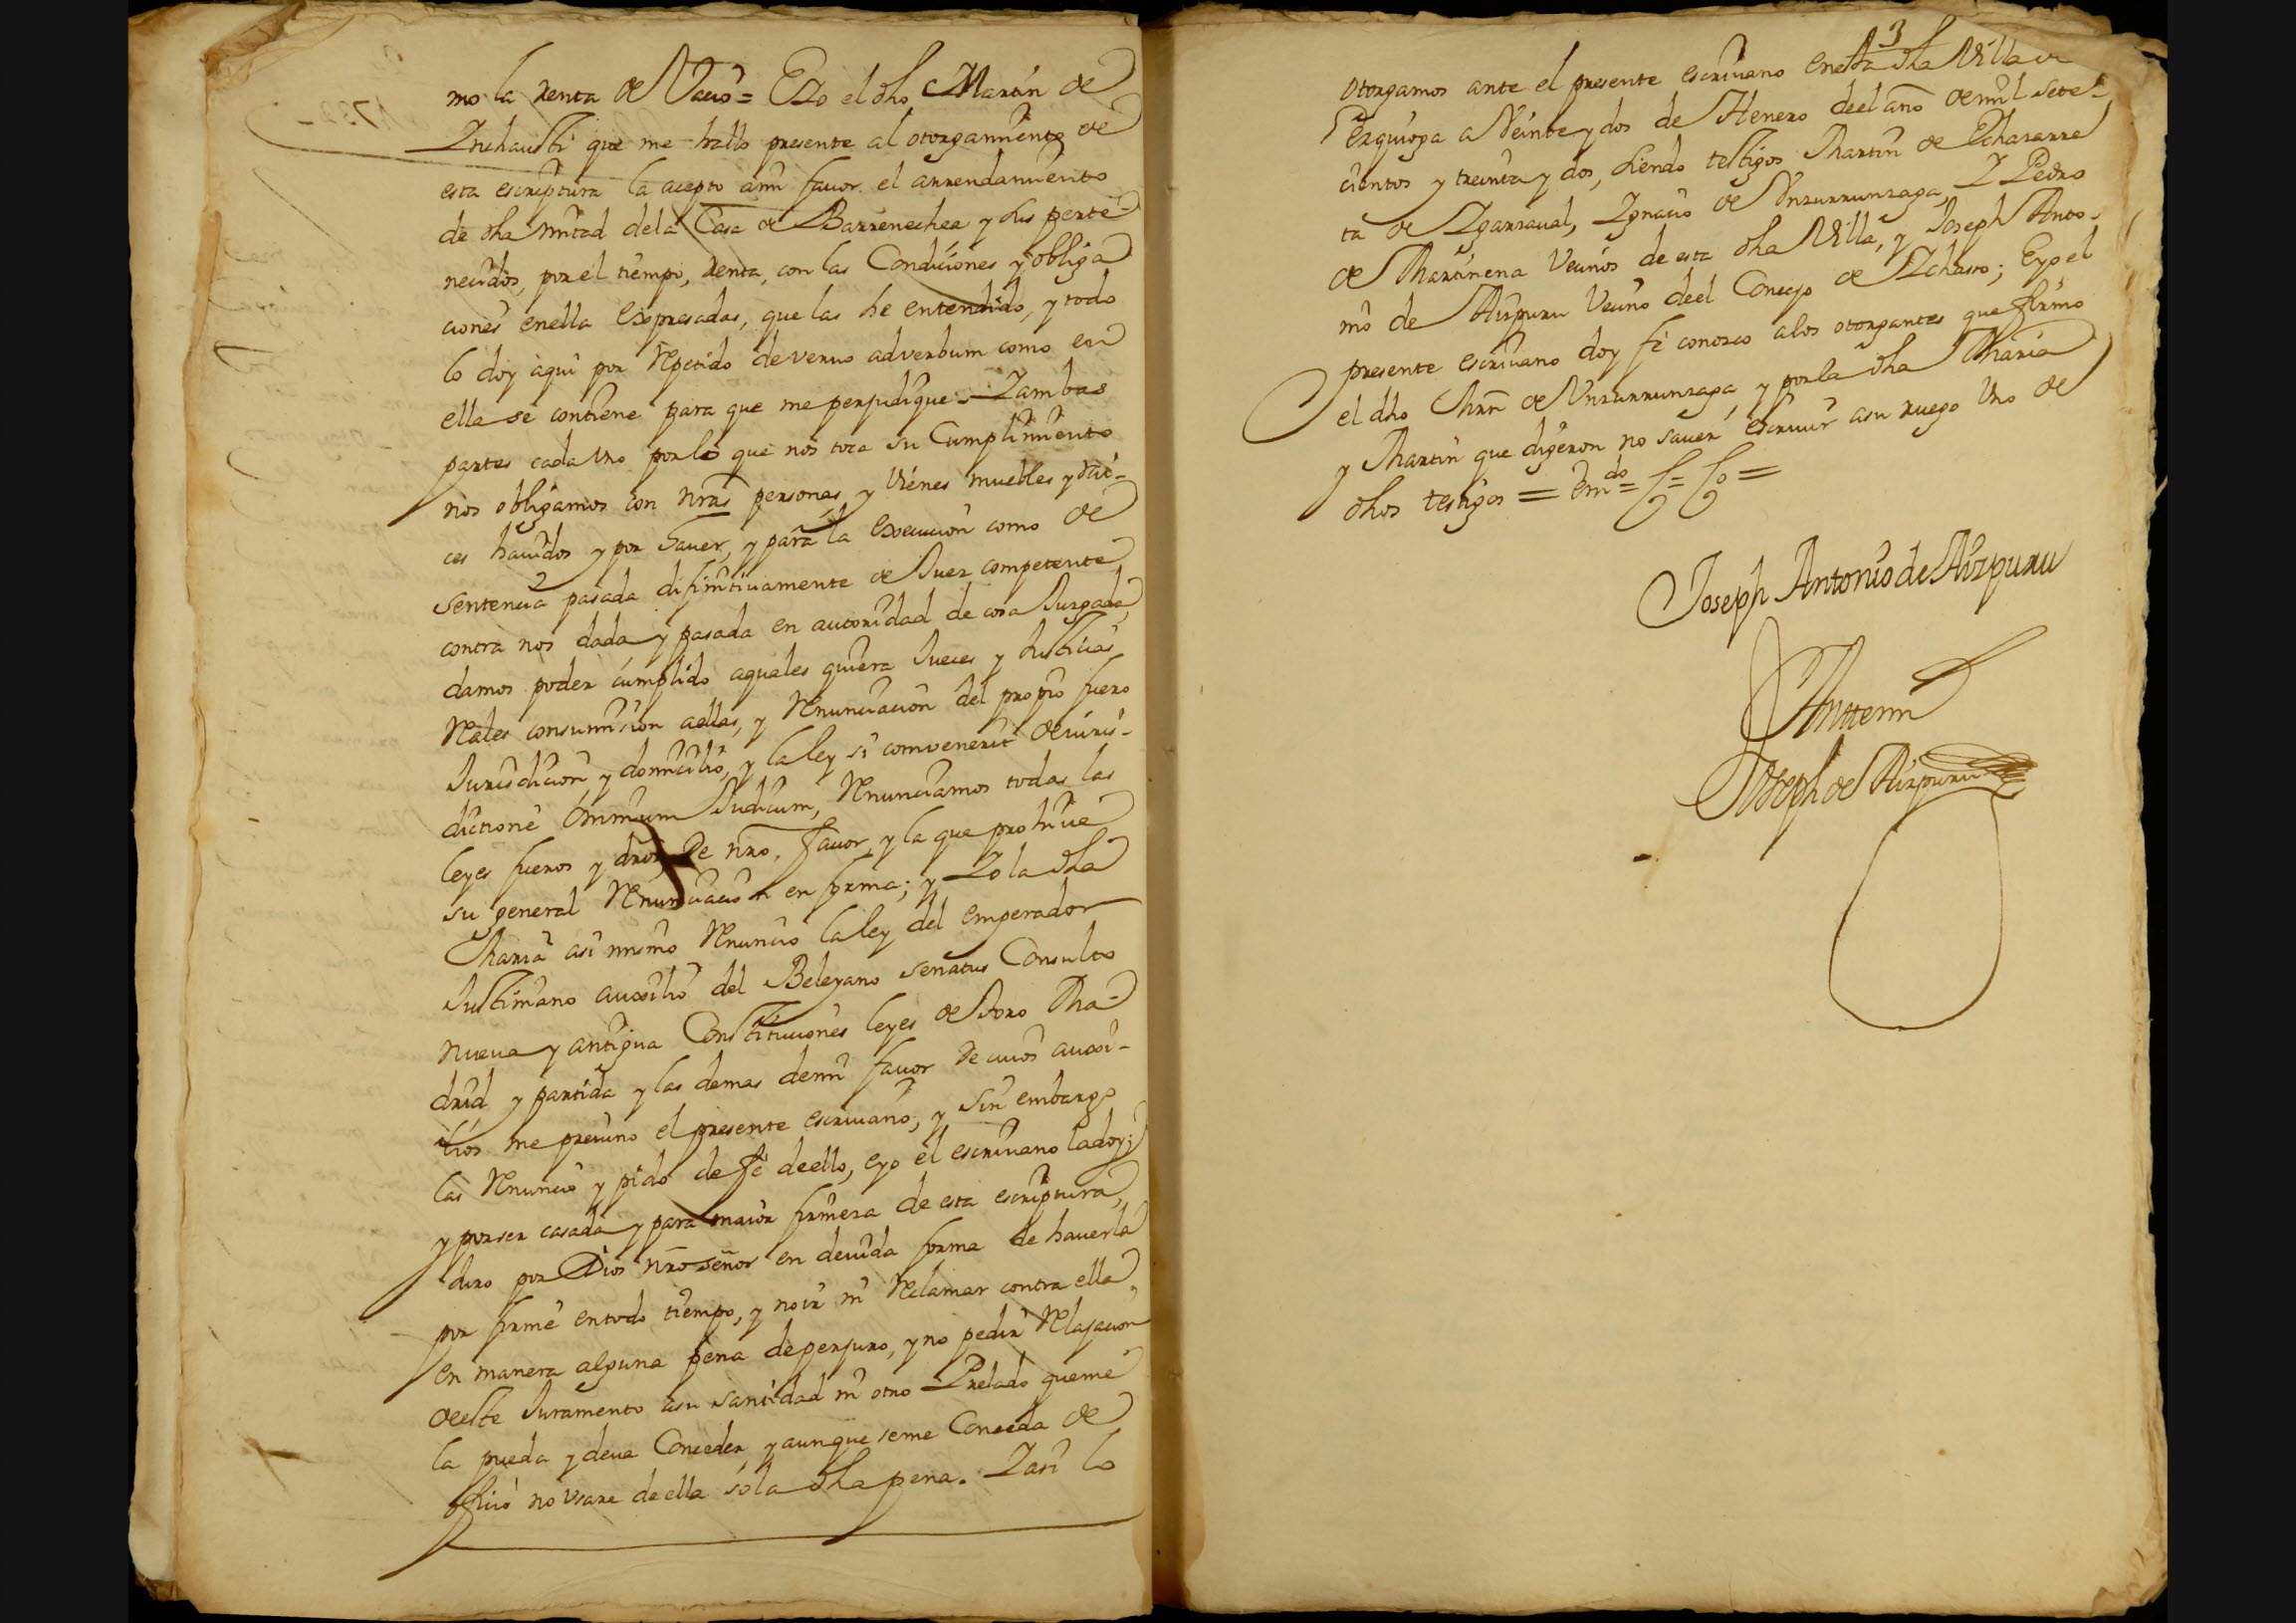 mo la renta de Vacio = E Yo el dho Martin de
Inchausti que me hallo presente al otorgamiento de
esta escriptura la acepto ami favor el arrendamiento
de dha mitad dela Casa de Barrenechea y sus perte-
necidos, por el tiempo, renta, con las Condiciones y obliga
ciones enella expresadas, que las he entendido, y todo
lo doy aqui por repetido de vervo adverbum como en
ella se contiene para que me perjudique. Y ambas
partes cada uno porlo que nos toca su Cumplimiento
nos obligamos con nras personas y vienes muebles y rai-
ces havidos y por haver, y para la execucion como de
sentencia pasada difinitivamente de Juez competente
contra nos dada y pasada en autoridad de cosa Juzgada
damos poder cumplido aquales quiera Jueces y Justicias
Reales consumision aellas, y Renunciacion del propio fuero
Jurisdicion y domicilio, y la ley si convenerit de iuris-
dictione omnium Judicum, Renunciamos todas las
leyes fueros y dros de nro. favor, y la que prohive
su general Renunciacion en forma; y Yo la dha
Maria asi mismo Renuncio la ley del emperador
Justiniano auxilio del Beleyano senatus Consulto
nueva y antigua Constituciones leyes de Toro Ma-
drid y partida y las demas demi favor de cuios auxi-
lios me previno el presente escrivano, y sin embargo
las Renuncio y pido de fe deello, eyo el escrivano la doy;
y porser casada y para maior firmeza de esta escriptura,
Juro por Dios nro señor en devida forma de haverla
por firme entodo tiempo, y no ir ni Reclamar contra ella
en manera alguna pena deperjuro, y no pedir Relajacion
deeste Juramento asu santidad ni otro Prelado queme
la pueda y deva Conceder, y aunque seme Conceda de
oficio no usare deella sola dha pena. Y asi lo
3
otorgamos ante el presente escrivano enesta dha Villa de
Ezquioga a Veinte y dos de Henero deel año de mil sete-
cientos y treinta y dos, siendo testigos Martin de Echazarre
ta de Igarzaval, Ignacio de Unzurrunzaga, Y Pedro
de Martinena Vecinos de esta dha Villa, y Joseph Anto-
nio de Aizpuru Vecino deel Concejo de Ichaso; Eyo el
presente escrivano doy fe conozco alos otorgantes que firmo
el dho Mrn de Unzurrunzaga, y porla dha Maria
y Martin que digeron no saver escrivir asu ruego Uno de
dhos testigos = Emdo =
Joseph Antonio de Aizpuru
Anttemi
Joseph de Aizpuru